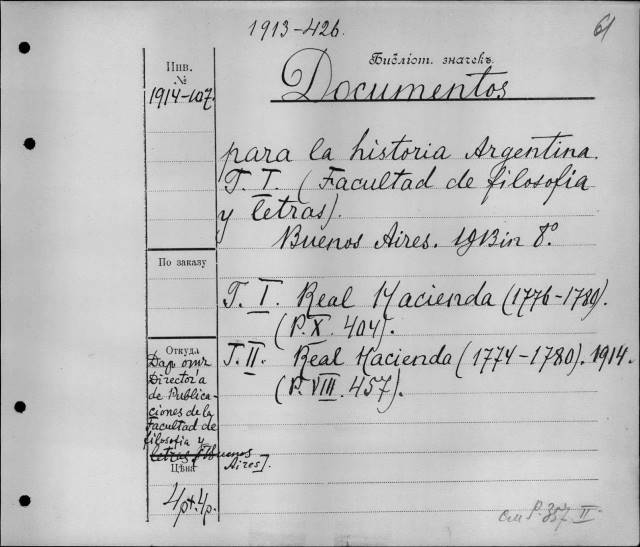 1913-426.
61
Инв.
№
1914-107.
Библіот. значекъ.
Documentos
para la historia Argentina.
T. I. (Facultad de filosofia
y letras).
Buenos Aires. 1913 in 8°.
По заказу
T. I. Real Hacienda (1776-1780).
(P. X. 404).
T. II. Real Hacienda (1774-1780). 1914.
(P. VIII. 457).
Откуда
Дар отъ
Director'a
de Publica-
ciones de la
Facultad de
filosofia y
letras [Buenos
Aires].
Цѣна
4р+4р.
См P. 357 II